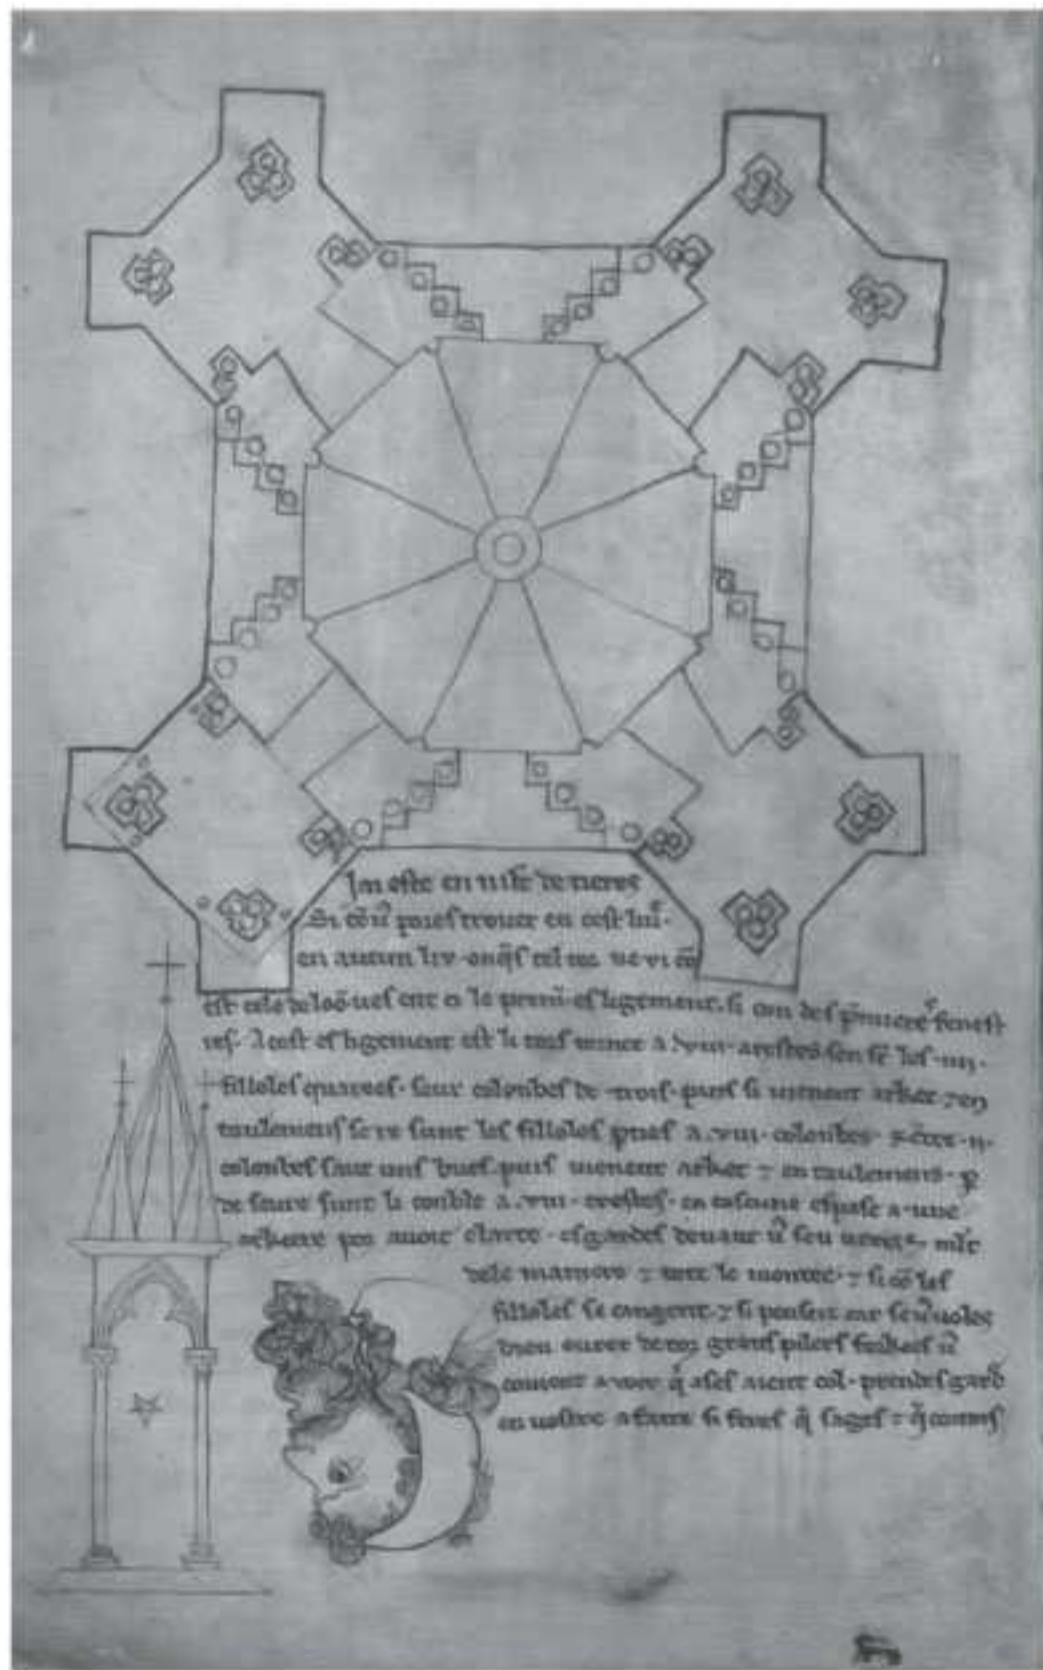 J'ai este en mlt de tieres
Si cō vꝰ pores trover en cest livͬ.
en aucun liu. onq̄s tel tor ne vi cō
est cele de loō. ves ent ci le premī. esligement. si con des p̄mieres fenest
res. A cest esligement est li tors tornee a .viii. arestes. sen sē les .iiii.
filloles quarees. seur colonbes de trois. puis si vienent arket. ⁊ en
taulemens se re sunt les filloles p̄ties a .viii. colonbes. ⁊ ētre .ii.
colonbes saut uns bues. puis vienent arket ⁊ en taulemens. p̱
de seure sunt li conble a .viii. crestes. en cascune espase a une
arkiere por avoir clarte. esgardes devant vꝰ sen veres mlt
dele maniere ⁊ tote le montee. ⁊ si cō les
filloles se cangent. ⁊ si penseis car se vꝰ voles
bien ovrer de toz grans pilers forkies vꝰ
covient avoir q̄ ases aient col. prendes gard
en vostre afaire si feres q̄ sages ⁊ q̄ cortois